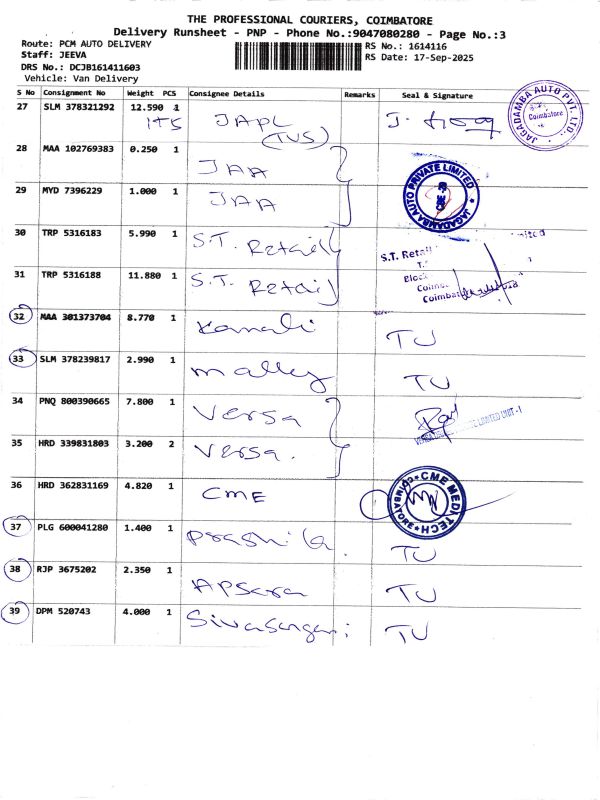 THE PROFESSIONAL COURIERS, COIMBATORE
Delivery Runsheet - PNP - Phone No.:9047080280 - Page No.:3
Route: PCM AUTO DELIVERY
RS No.: 1614116
Staff: JEEVA
RS Date: 17-Sep-2025
DRS No.: DCJB161411603
Vehicle: Van Delivery
S No Consignment No Weight PCS Consignee Details Remarks Seal & Signature
27 SLM 378321292 12.590 1 JAPL
ITS (TVS)
JAGADAMBA AUTO PVT. LTD.,
Coimbatore
28 MAA 102769383 0.250 1 JAA
JAGADAMBA AUTO PRIVATE LIMITED
CBE
29 MYD 7396229 1.000 1 JAA
30 TRP 5316183 5.990 1 S.T. Retail
S.T. Retail
Block
Coimbat
31 TRP 5316188 11.880 1 S.T. Retail
32 MAA 301373704 8.770 1 Kamali TU
33 SLM 378239817 2.990 1 malley TU
34 PNQ 800390665 7.800 1 Versa
LIMITED UNIT - I
35 HRD 339831803 3.200 2 Versa.
36 HRD 362831169 4.820 1 CME
CME MEDITECH
COIMBATORE
37 PLG 600041280 1.400 1 TU
38 RJP 3675202 2.350 1 Apsara TU
39 DPM 520743 4.000 1 TU